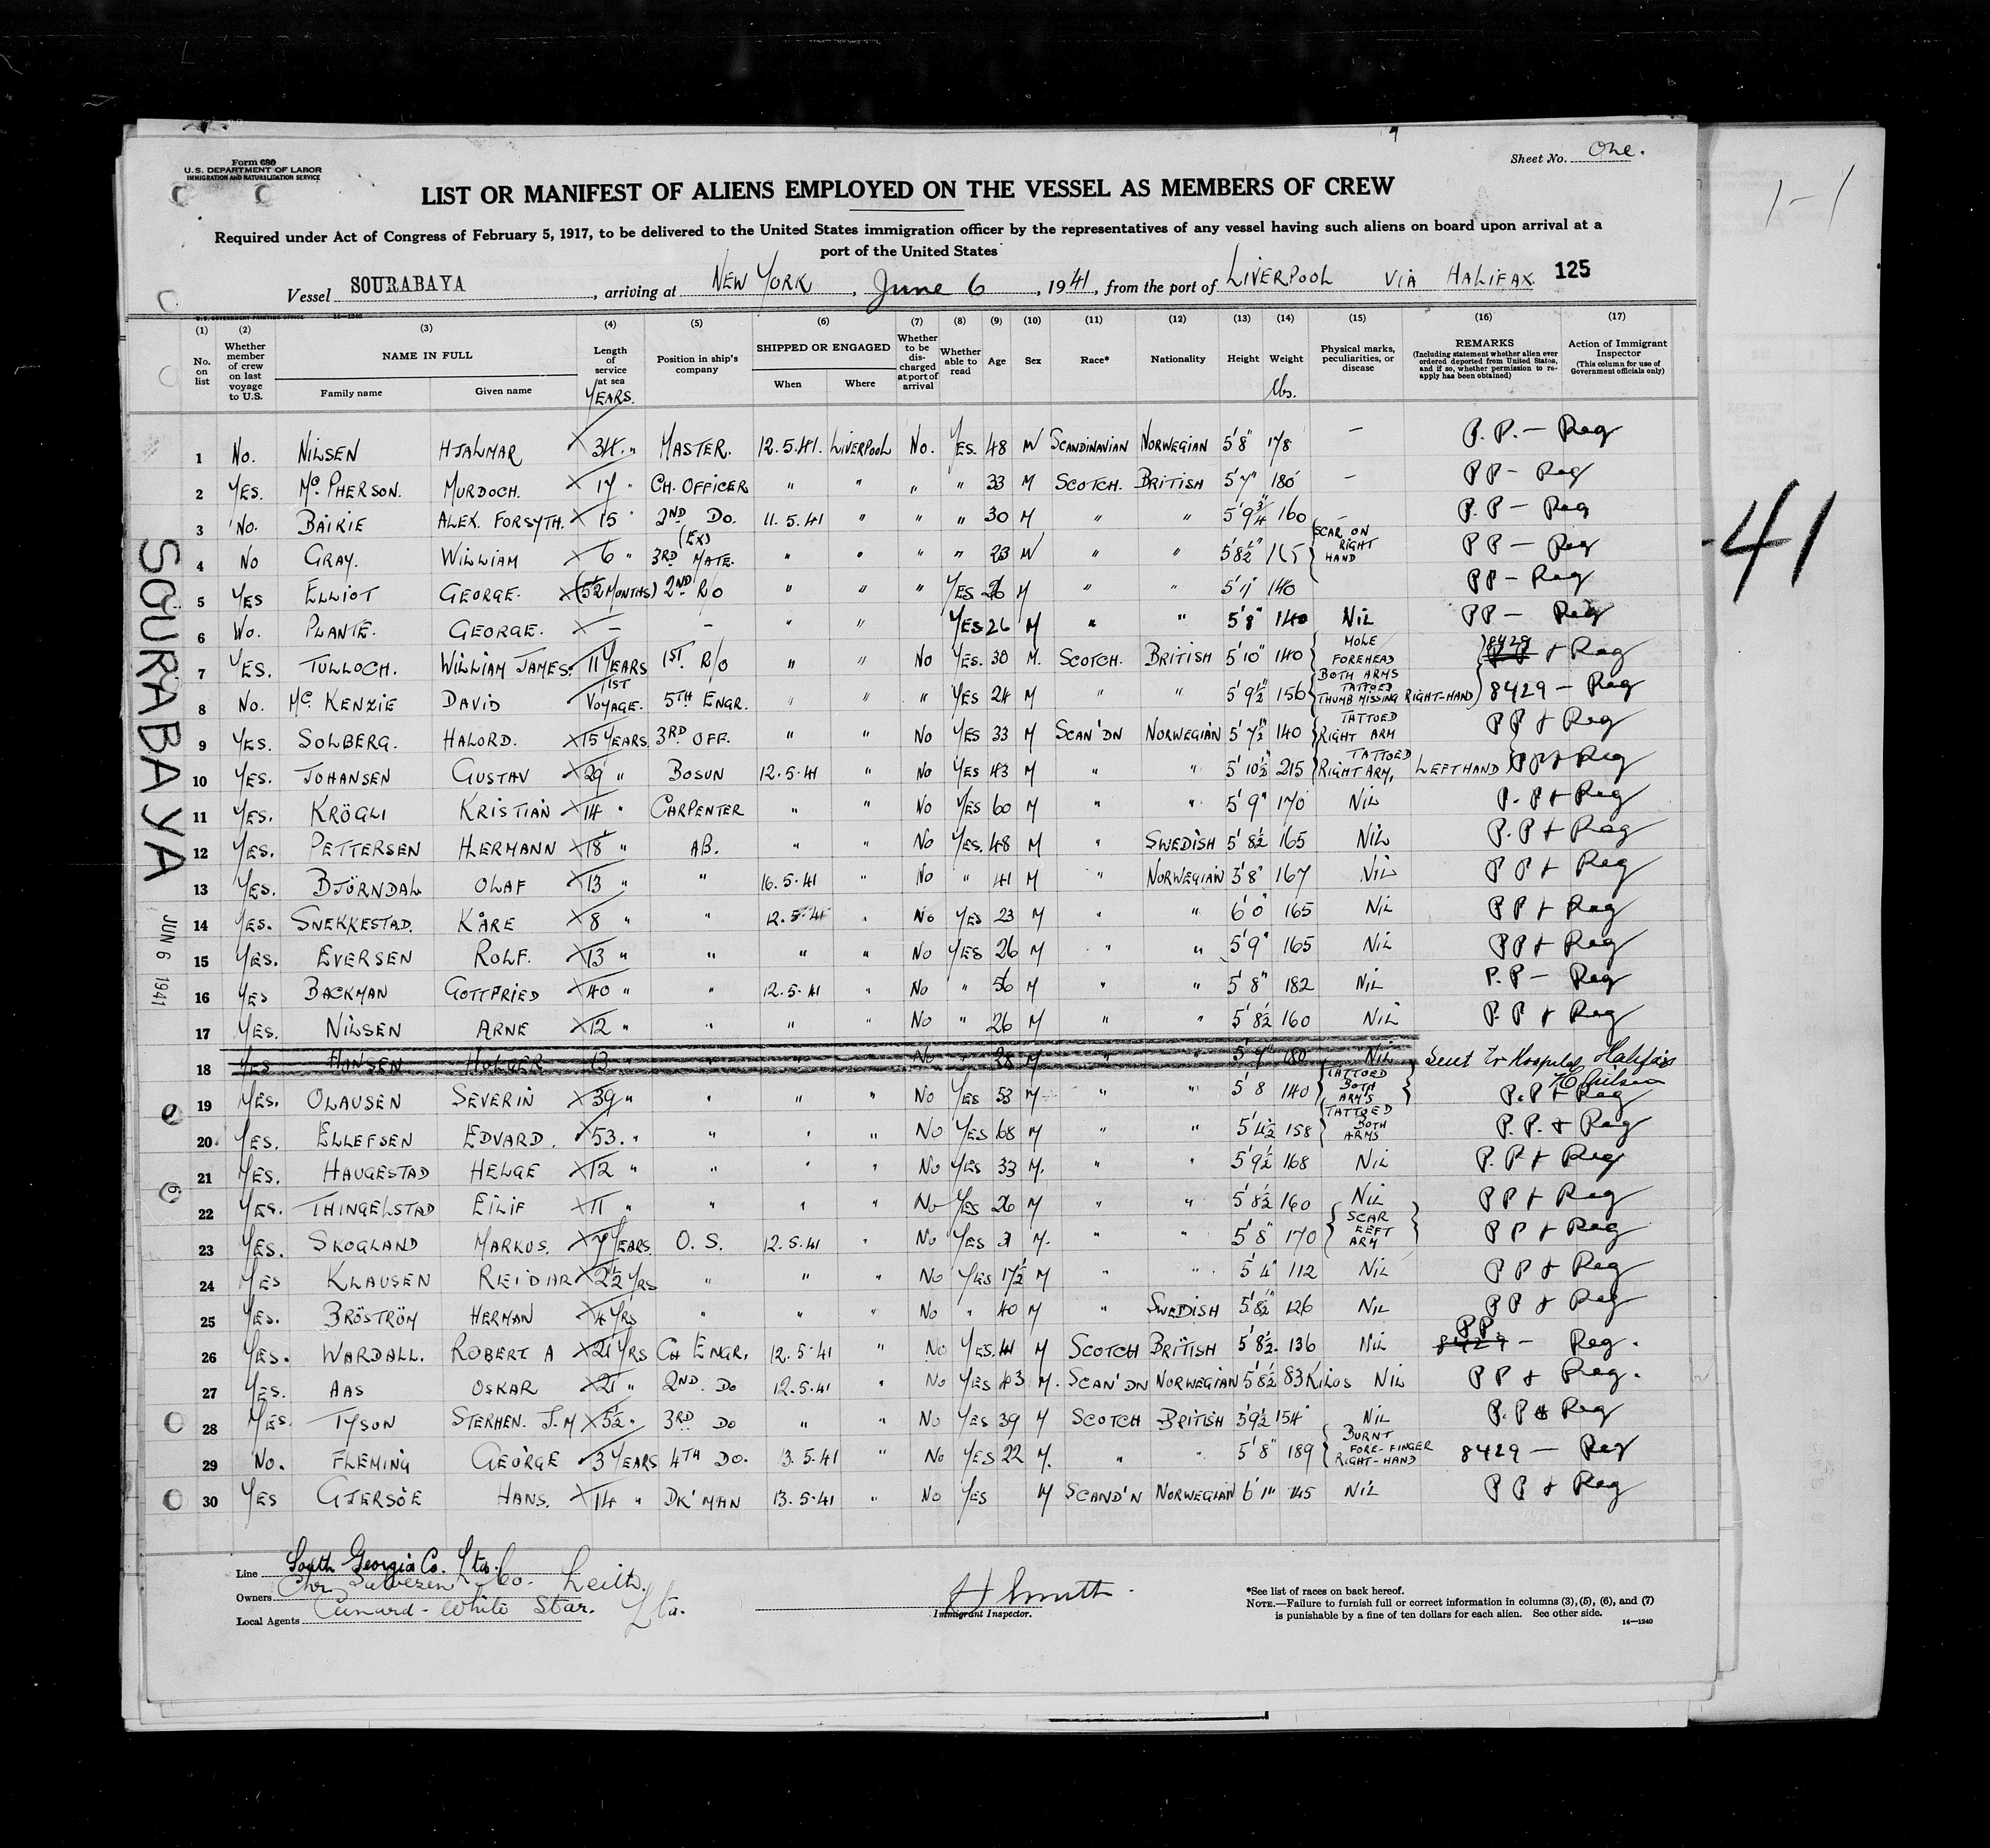 Form 680
U.S. DEPARTMENT OF LABOR
IMMIGRATION AND NATURALIZATION SERVICE
Sheet No. One.
LIST OR MANIFEST OF ALIENS EMPLOYED ON THE VESSEL AS MEMBERS OF CREW
Required under Act of Congress of February 5, 1917, to be delivered to the United States immigration officer by the representatives of any vessel having such aliens on board upon arrival at a
port of the United States
Vessel SOURABAYA, arriving at NEW YORK, June 6, 1941, from the port of LIVERPOOL VIA HALIFAX. 125
U. S. GOVERNMENT PRINTING OFFICE 14—1240
(1) (2) (3) (4) (5) (6) (7) (8) (9) (10) (11) (12) (13) (14) (15) (16) (17)
No. on list
Whether member of crew on last voyage to U.S.
NAME IN FULL
Family name
Given name
Length of service at sea YEARS.
Position in ship's company
SHIPPED OR ENGAGED
When
Where
Whether to be discharged at port of arrival
Whether able to read
Age
Sex
Race*
Nationality
Height
Weight lbs.
Physical marks, peculiarities, or disease
REMARKS
(Including statement whether alien ever ordered deported from United States, and if so, whether permission to reapply has been obtained)
Action of Immigrant Inspector
(This column for use of Government officials only)
1 No. NILSEN HJALMAR 34 " MASTER. 12.5.41. LIVERPOOL No. YES. 48 M SCANDINAVIAN NORWEGIAN 5'8" 178 — P.P. — Reg
2 YES. Mc. PHERSON. MURDOCH. 17 " CH. OFFICER " " " " 33 M SCOTCH. BRITISH 5'7" 180 — PP — Reg
3 No. BAIKIE ALEX. FORSYTH. 15 " 2ND Do. 11.5.41 " " " 30 M " " 5'9¾" 160 — P.P — Reg
4 No GRAY. WILLIAM 6 " (EX) 3RD MATE. " " " " 23 M " " 5'8½" 165 SCAR ON RIGHT HAND PP — Reg
5 YES ELLIOT GEORGE. (5½ MONTHS) 2ND R/O " " " YES 26 M " " 140 PP — Reg
6 No. PLANTE. GEORGE. — — " " YES 26 M " " 5'8" 140 NIL PP — Reg
7 YES. TULLOCH. WILLIAM JAMES. 11 YEARS 1ST. R/O " " No YES. 30 M. SCOTCH. BRITISH 5'10" 140 MOLE FOREHEAD 8429 PP + Reg
8 No. Mc. KENZIE DAVID 1ST VOYAGE. 5TH ENGR. " " " YES 24 M " " 5'9½" 156 BOTH ARMS TATTOED THUMB MISSING RIGHT-HAND) 8429 — Reg
9 YES. SOLBERG. HALORD. 15 YEARS 3RD OFF. " " No YES 33 M SCAN'DN NORWEGIAN 5'7½" 140 TATTOED RIGHT ARM PP + Reg
10 YES. JOHANSEN GUSTAV 29 " BOSUN 12.5.41 " No YES 43 M " " 5'10½" 215 TATTOED RIGHT ARM, LEFT HAND PP + Reg
11 YES. KRÖGLI KRISTIAN 14 " CARPENTER " " No YES 60 M " " 5'9" 170 NIL P.P + Reg
12 YES. PETTERSEN HERMANN 18 " AB. " " No YES. 48 M " SWEDISH 5'8½ 165 NIL P.P + Reg
13 YES. BJÖRNDAL OLAF 13 " " 16.5.41 " No " 41 M " NORWEGIAN 5'8" 167 NIL PP + Reg
14 YES. SNEKKESTAD. KÅRE 8 " " 12.5.41 " No YES 23 M " " 6'0" 165 NIL PP + Reg
15 YES. EVERSEN ROLF. 13 " " " " No YES 26 M " " 5'9" 165 NIL PP + Reg
16 YES BACKMAN GOTTFRIED 40 " " 12.5.41 " No " 56 M " " 5'8" 182 NIL P.P — Reg
17 YES. NILSEN ARNE 12 " " " " No " 26 M " " 5'8½ 160 NIL P.P + Reg
18 YES HANSEN HOLGER 13 " " " " No " 38 M " " 5'7" 180 NIL Sent to Hospital Halifax H Nilsen
19 YES. OLAUSEN SEVERIN 39 " " " " No YES 53 M " " 5'8 140 TATTOED BOTH ARM'S P.P + Reg
20 YES. ELLEFSEN EDVARD. 53. " " " " No YES 68 M " " 5'4½ 158 TATTOED BOTH ARMS P.P. + Reg
21 YES. HAUGESTAD HELGE 12 " " " " No YES 33 M. " " 5'9½ 168 NIL P.P + Reg
22 YES. THINGELSTAD EILIF 11 " " " " No YES 26 M " " 5'8½ 160 NIL PP + Reg
23 YES. SKOGLAND MARKUS. 7 YEARS. O.S. 12.5.41 " No YES M. " " 5'8" 170 SCAR LEFT ARM PP + Reg
24 YES KLAUSEN REIDAR 2½ YRS " " " No YES 17½ M " " 5'4" 112 NIL PP + Reg
25 YES. BRÖSTRÖM HERMAN 4 YRS " " " No " 40 M " SWEDISH 5'8½" 126 NIL PP + Reg
26 YES. WARDALL. ROBERT A 21 YRS CH ENGR. 12.5.41 " No YES. 44 M SCOTCH BRITISH 5'8½. 136 NIL PP 8429 — Reg.
27 YES. AAS OSKAR 21 " 2ND. Do 12.5.41 " No YES 43 M. SCAN'DN NORWEGIAN 5'8½ 83 KILOS NIL PP + Reg.
28 YES. TYSON STEPHEN. J.M 5½ " 3RD Do " " No YES 39 M SCOTCH BRITISH 5'9½ 154 NIL P.P + Reg
29 No. FLEMING GEORGE 3 YEARS 4TH DO. 13.5.41 " No YES 22 M. " " 5'8" 189 BURNT FORE-FINGER RIGHT-HAND 8429 — Reg
30 YES GJERSÖE HANS. 14 " DK'MAN 13.5.41 " No YES M SCAND'N NORWEGIAN 6'1" 145 NIL PP + Reg
Line South Georgia Co. Ltd.
Owners Chr. Salvesen & Co. Leith.
Local Agents Cunard-White Star. Ltd.
H Smith
Immigrant Inspector.
*See list of races on back hereof.
NOTE.—Failure to furnish full or correct information in columns (3), (5), (6), and (7)
is punishable by a fine of ten dollars for each alien. See other side.
14—1240
SOURABAYA
JUN 6 1941
1-1
-41